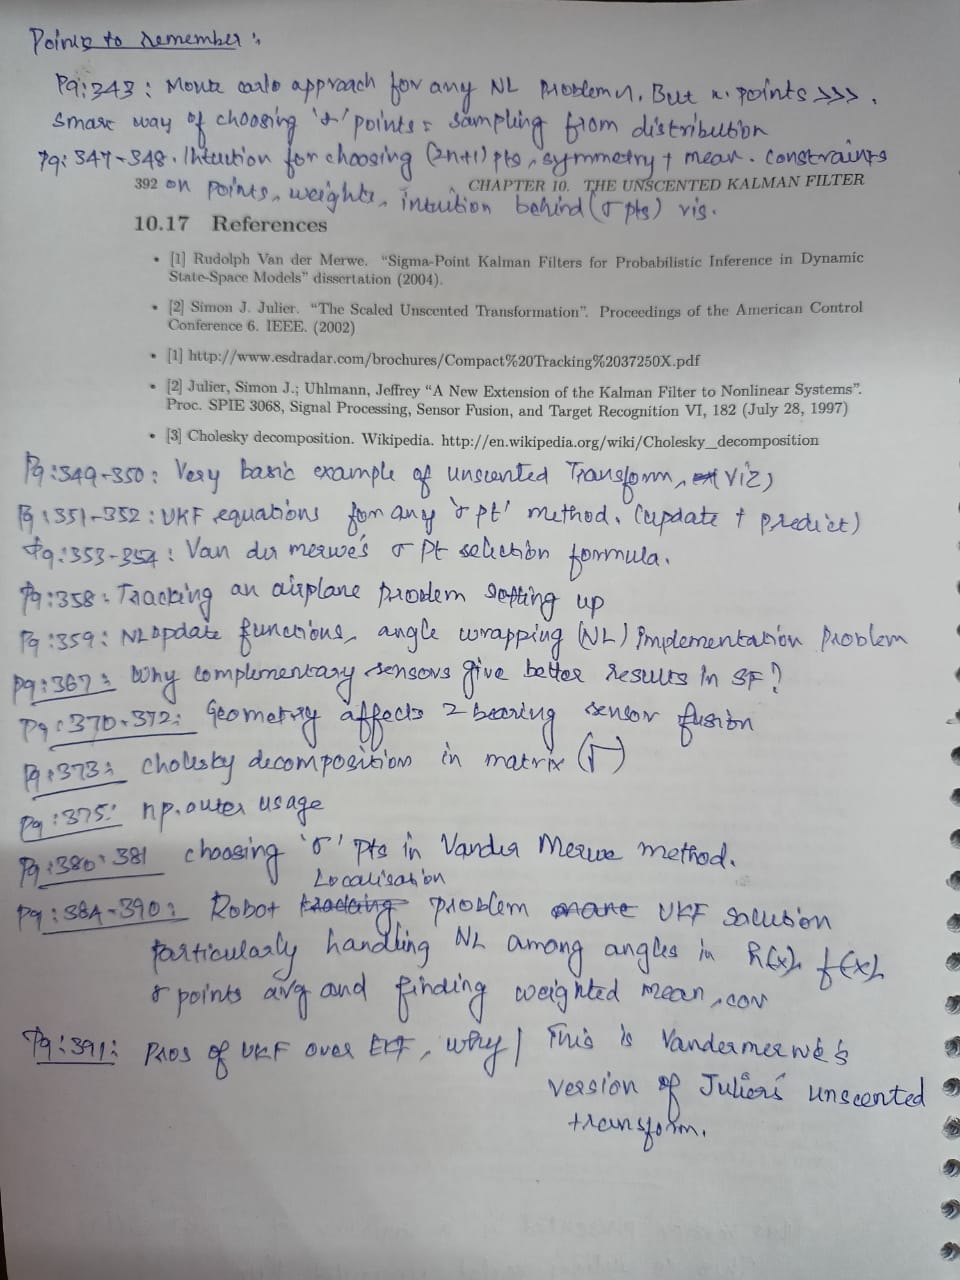 Points to remember :
Pg:343 : Monte carlo approach for any NL problem, But n. points >>> .
Smart way of choosing 'σ' points = sampling from distribution
Pg: 347-348. Intuition for choosing (2n+1) pts, symmetry + mean. constraints
392 on points, weights, intuition behind (σ pts) vis.
CHAPTER 10. THE UNSCENTED KALMAN FILTER
10.17 References
• [1] Rudolph Van der Merwe. “Sigma-Point Kalman Filters for Probabilistic Inference in Dynamic
State-Space Models” dissertation (2004).
• [2] Simon J. Julier. “The Scaled Unscented Transformation”. Proceedings of the American Control
Conference 6. IEEE. (2002)
• [1] http://www.esdradar.com/brochures/Compact%20Tracking%2037250X.pdf
• [2] Julier, Simon J.; Uhlmann, Jeffrey “A New Extension of the Kalman Filter to Nonlinear Systems”.
Proc. SPIE 3068, Signal Processing, Sensor Fusion, and Target Recognition VI, 182 (July 28, 1997)
• [3] Cholesky decomposition. Wikipedia. http://en.wikipedia.org/wiki/Cholesky_decomposition
Pg:349-350: Very basic example of unscented Transform, Viz)
Pg:351-352: UKF equations for any 'σ pt' method. (update + predict)
Pg:353-354: Van der merwe's σ pt selection formula.
Pg:358: Tracking an airplane problem setting up
Pg:359: NL update functions, angle wrapping (NL) implementation problem
Pg:367: Why complementary sensors give better results in SF?
Pg:370-372: Geometry affects 2 bearing sensor fusion
Pg:373: cholesky decomposition in matrix (√)
Pg:375: np.outer usage
Pg:380-381 choosing 'σ' pts in Vander Merwe method.
Localisation
Pg:384-390: Robot tracking problem UKF solution
particularly handling NL among angles in h(x), f(x),
σ points avg and finding weighted mean, cov
Pg:391: Pros of UKF over EKF, why | This is Vandermerwe's
version of Julier's unscented
transform.